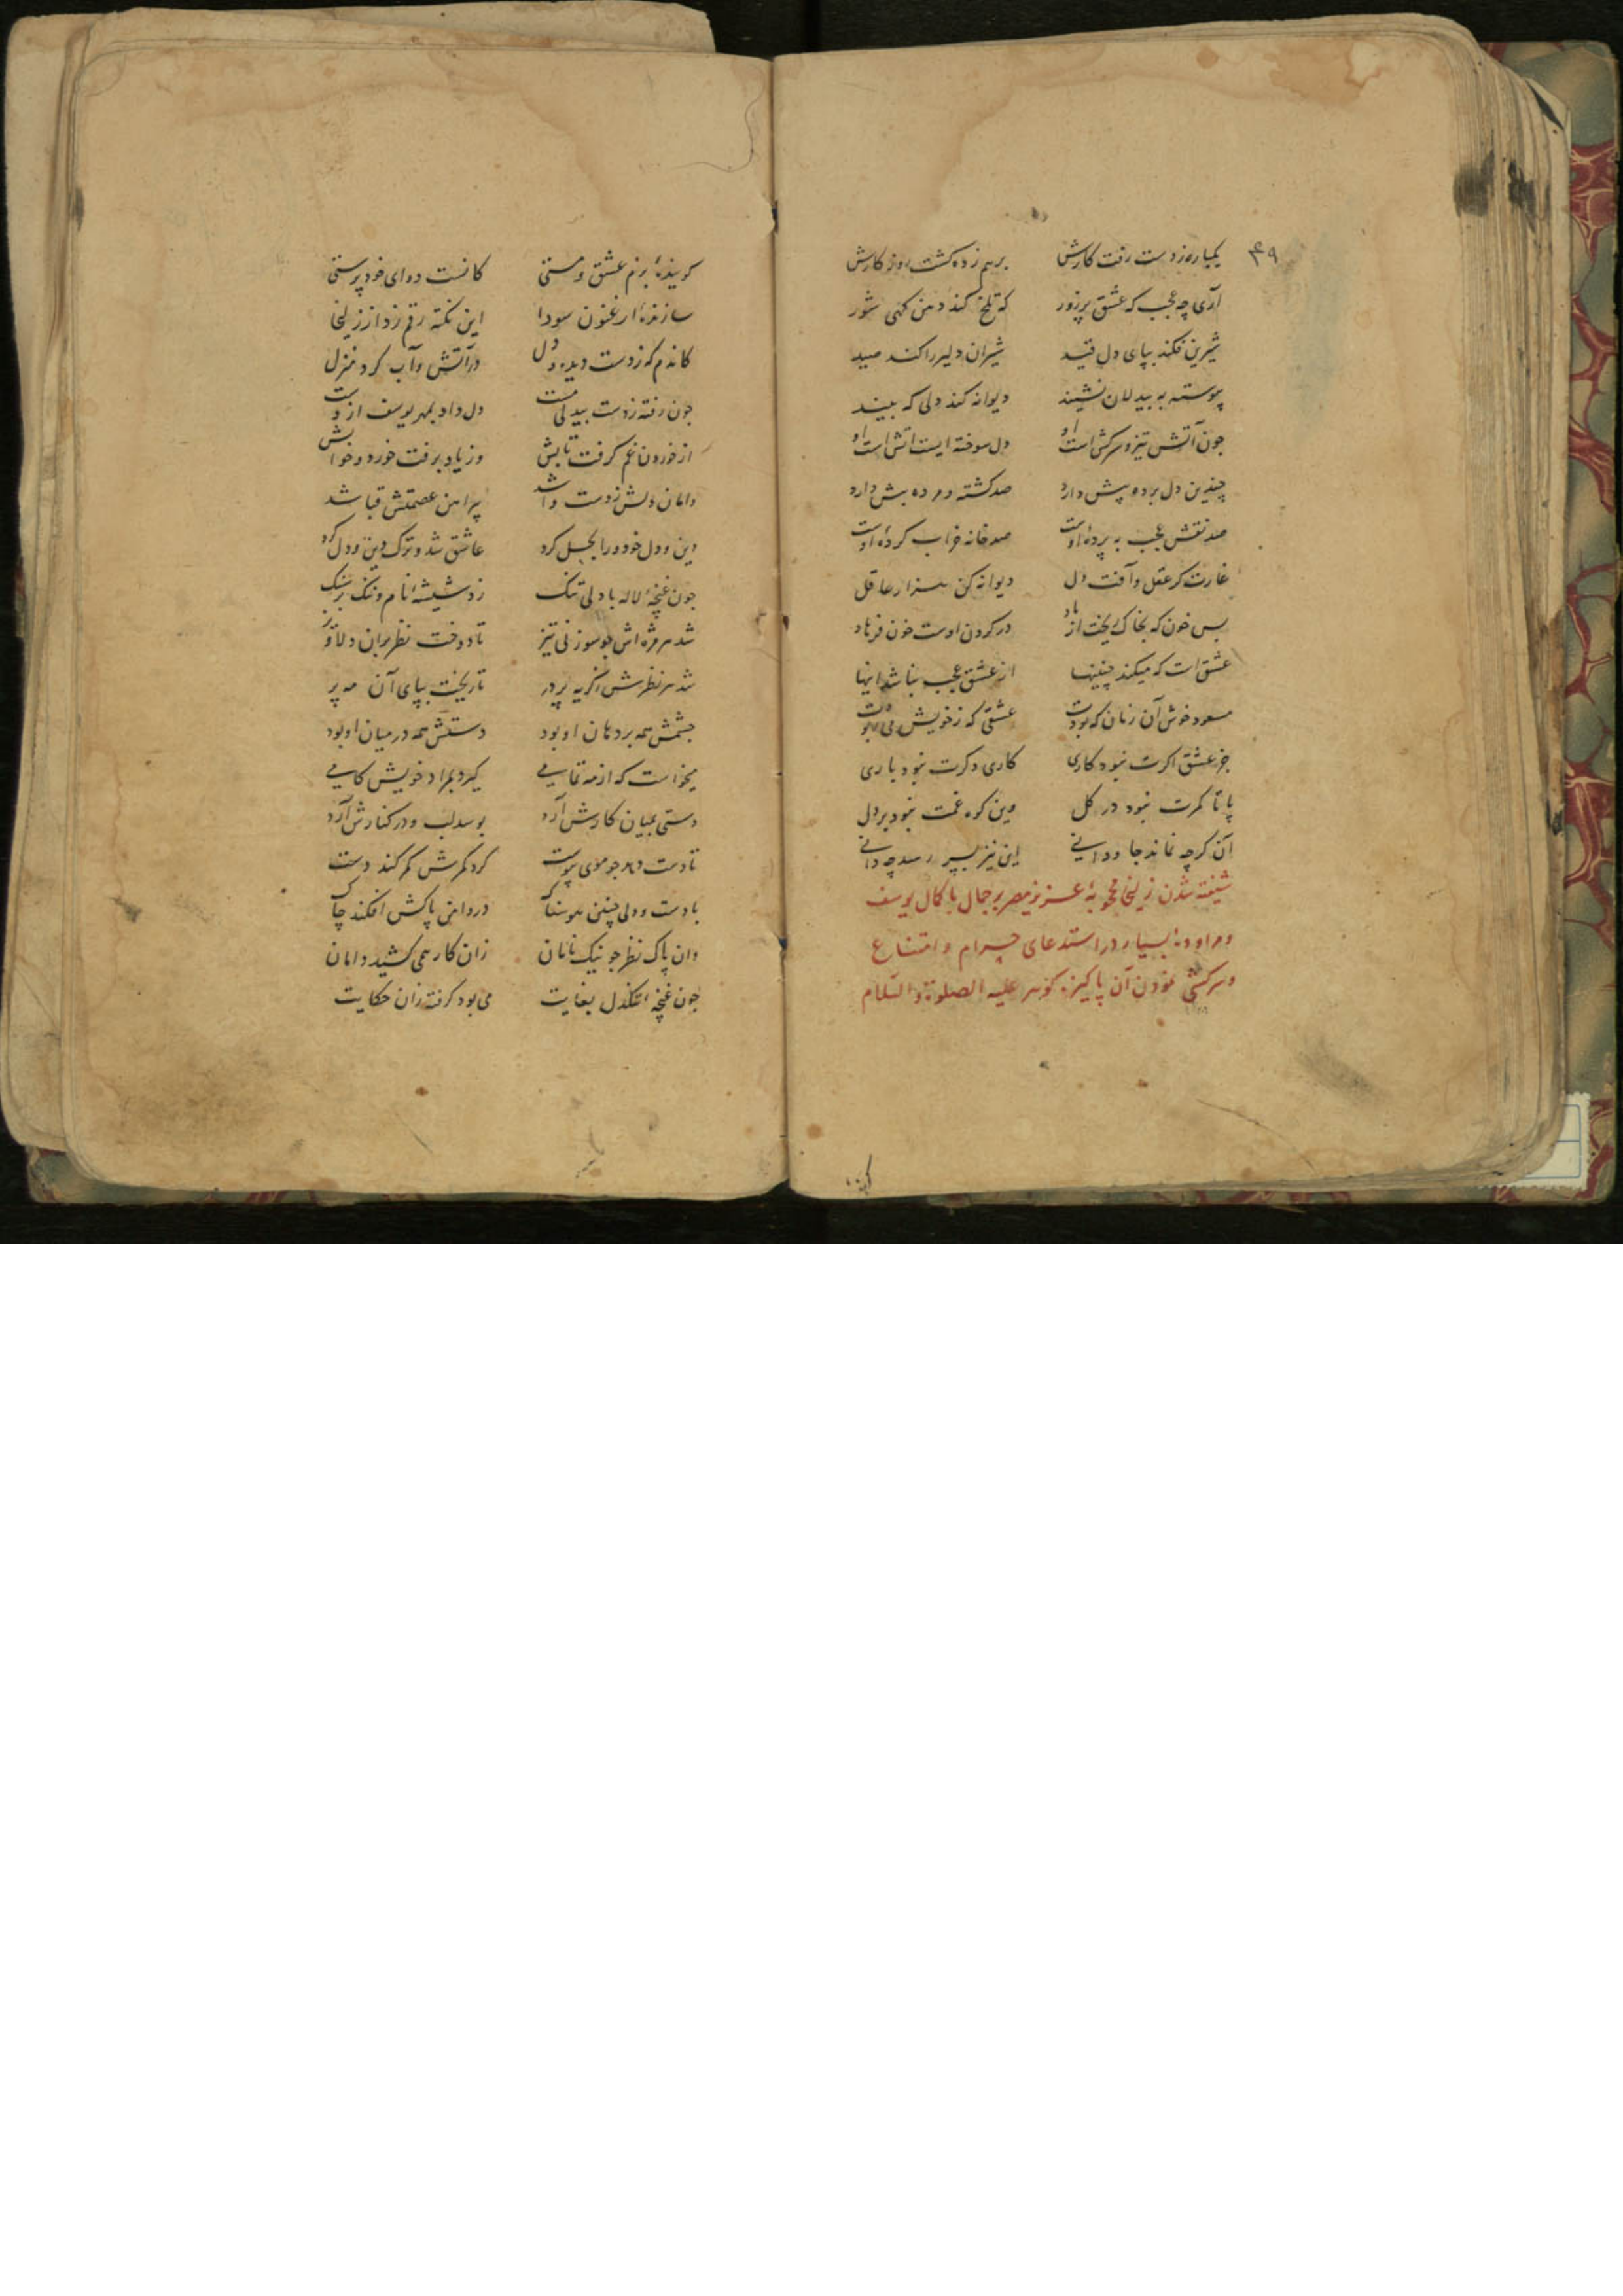 ۴۹
یکباره ز دست رفت کارش برهم زده کشت روز کارش
آری چه عجب که عشق پر زور که تلخ کند دهن کهی شور
شیرین فکند بپای دل قید شیران دلیر را کند صید
پیوسته به بیدلان نشیند دیوانه کند دلی که بیند
چون آتش تیز و سرکش است او دل سوخته ایست آتش است او
چندین دل برده پیش دارد صد کشته و مرده بیش دارد
صد نقش عجب به پردهٔ اوست صد خانه خراب کردهٔ اوست
غارت کر عقل و آفت دل دیوانه کن هزار عاقل
بس خون که بخاک ریخت از باد در کردن اوست خون فرهاد
عشق است که میکند چنینها از عشق عجب نباشد اینها
مسعود خوش آن زمان که بودت عشقی که ز خویش می ربودت
جز عشق اکرت نبود کاری کاری دکرت نبود باری
پا تا کمرت نبود در کل وین کوه غمت نبود بر دل
آن کرچه نماند جاودانی این نیز بسر رسد چه دانی
شیفته شدن زلیخا محبوبهٔ عزیز مصر بر جمال با کمال یوسف
و مراودهٔ بسیار در استدعای حرام و امتناع
و سرکشی نمودن آن پاکیزه کوهر علیه الصلوة و السلام
کویندهٔ بزم عشق و مستی کانست ده ای خود پرستی
سازندهٔ ارغنون سودا این نکته رقم زد از زلیخا
کاندم که ز دست دیده و دل در آتش و آب کرد منزل
چون رفته ز دست بیدلی مست دل داد بمهر یوسف از دست
از خوردن غم کرفت تابش وز یاد برفت خورد و خوابش
دامان دلش ز دست وا شد پیراهن عصمتش قبا شد
دین و دل خود ورا بحل کرد عاشق شد و ترک دین و دل کرد
چون غنچهٔ لاله با دلی تنک زد شیشهٔ نام و ننک بر سنک
شد هر مژه اش چو سوزنی تیز تا دوخت نظر بران دلاویز
شد هر نظرش ز کریه پر در تا ریخت بپای آن مه پر
چشمش همه بر دهان او بود دستش همه در میان او بود
میخواست که از مه تمامی کیرد بمراد خویش کامی
دستی بمیان کارش آرد بوسد لب و در کنارش آرد
تا دست دهد چو موی پیوست کرد کمرش کمر کند دست
با دست و دلی چنین هوسناک در دامن پاکش افکند چاک
وان پاک نظر چو نیک نامان زان کار همی کشید دامان
چون غنچهٔ تنکدل بغایت می بود کرفته زان حکایت